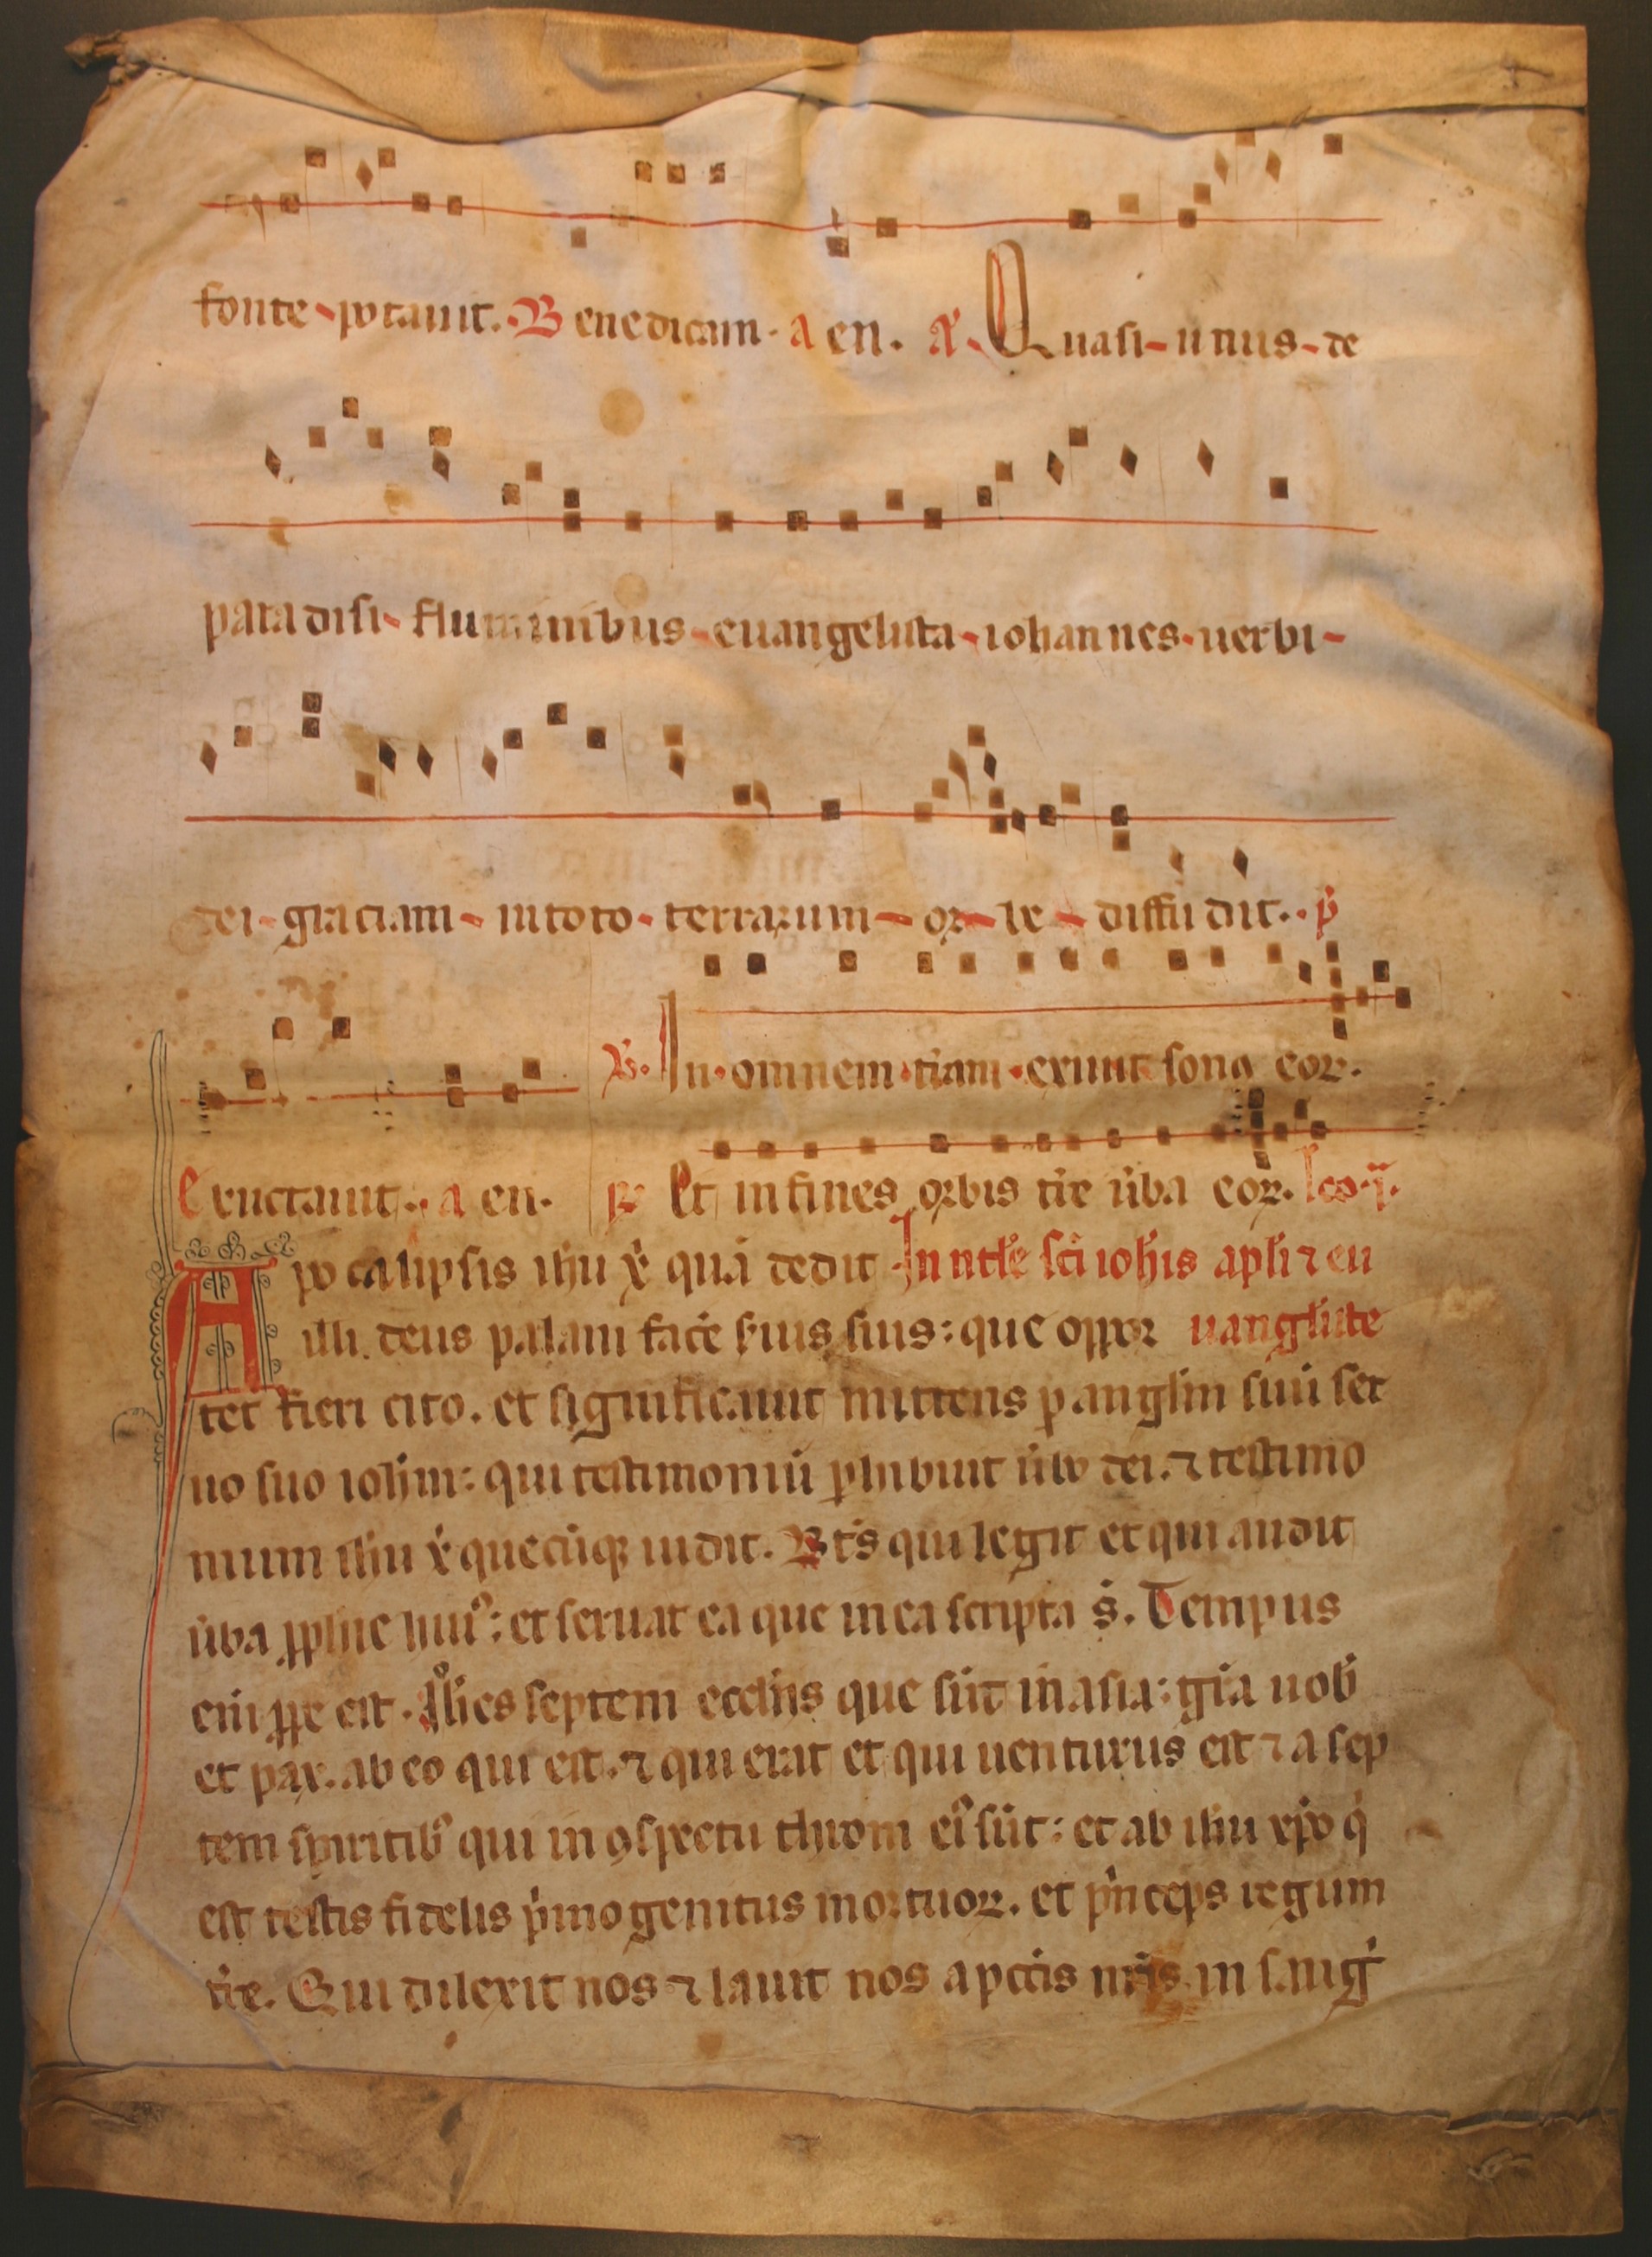 fonte potauit. Benedicam. aen. A. Quasi unus de
paradisi fluminibus euangelista iohannes uerbi
dei graciam in toto terrarum orbe diffudit. p̄
R. In omnem t̄ram exiuit sonꝰ eoꝝ.
Eructauit. aen. Et in fines orbis t̄re u̇ba eoꝝ. leo. i.
Apocalipsis ih̄u xp̄i quā dedit In nat̄le sc̄i ioh̄is apl̄i ⁊ eu
illi deus palam facē s̄uis suis: que opor uangl̄iste
tet fieri cito. et significauit mittens ꝑ angl̄m suū ser
uo suo ioh̄ni: qui testimoniū ꝑhibuit u̇bo dei. ⁊ testimo
nium ih̄u xp̄i quecūqꝫ uidit. Bt̄s qui legit et qui audit
u̇ba ꝓph̄ie huiꝰ: et seruat ea que in ea scripta s̄. Tempus
eni ꝓpe est. Ioh̄es septem eccl̄iis que sūt in asia: gr̄a uob̄
et pax. ab eo qui est. ⁊ qui erat et qui uenturus est ⁊ a sep
tem spiritibꝰ qui in ꝯspectu throni eiꝰ sūt: et ab ih̄u xp̄o q̇
est testis fidelis ṗmogenitus mortuoꝝ. et ṗnceps regum
t̄re. Qui dilexit nos ⁊ lauit nos a pcc̄is nr̄is in sang̅